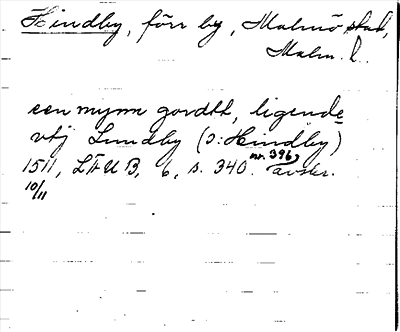 Hindby, förr by, Malmö stad,
Malm. l.
een mynn gordtt, ligende
vtj Lundby (ɔ: Hindby)
1511, LÄUB, 6, s. 340. nr. 396, avskr.
10/11